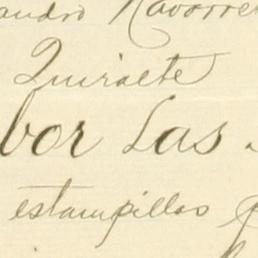 andro Navarre
Quiraete
bor Las
estampillas